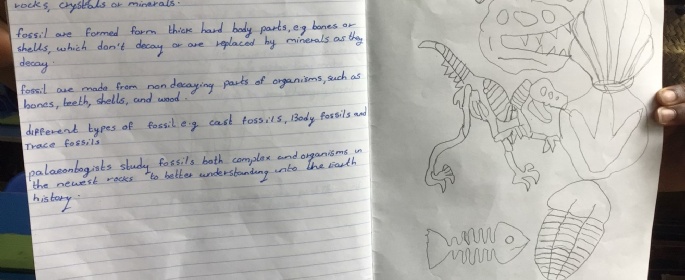 rocks, crystals or minerals.
fossil are formed form thick hard body parts, e.g bones or
shells, which don't decay or are replaced by minerals as they
decay.
fossil are made from non decaying parts of organisms, such as
bones, teeth, shells, and wood.
different types of fossil e.g cast fossils, Body fossils and
Trace fossils
palaeontogists study fossils both complex and organisms in
the newest rocks to better understanding unto the Earth
history.